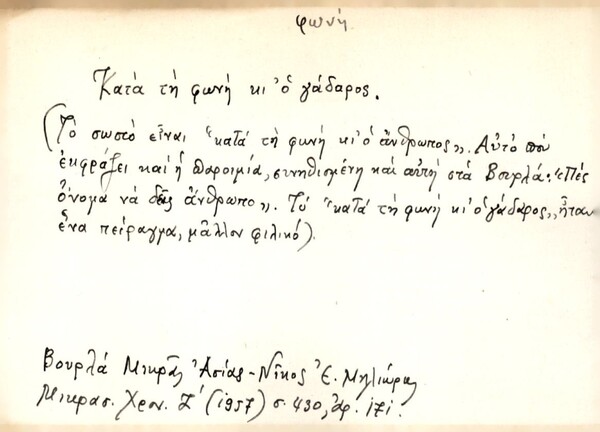 φωνή
Κατὰ τὴ φωνὴ κι' ὁ γάδαρος.
(Τὸ σωστὸ εἶναι "κατὰ τὴ φωνὴ κι' ὁ ἄνθρωπος,,. Αὐτὸ ποὺ
ἐκφράζει καὶ ἡ παροιμία, συνηθισμένη καὶ αὐτὴ στὰ Βουρλά: "Πὲς
ὄνομα νὰ δῇς ἄνθρωπο,,. Τὸ "κατὰ τὴ φωνὴ κι' ὁ γάδαρος,, ἦταν
ἕνα πείραγμα, μᾶλλον φιλικό).
Βουρλά Μικρᾶς Ἀσίας - Νῖκος Ἐ. Μηλιώρης
Μικρασ. Χρον. Ζ' (1957) σ. 430, ἀρ. 171.